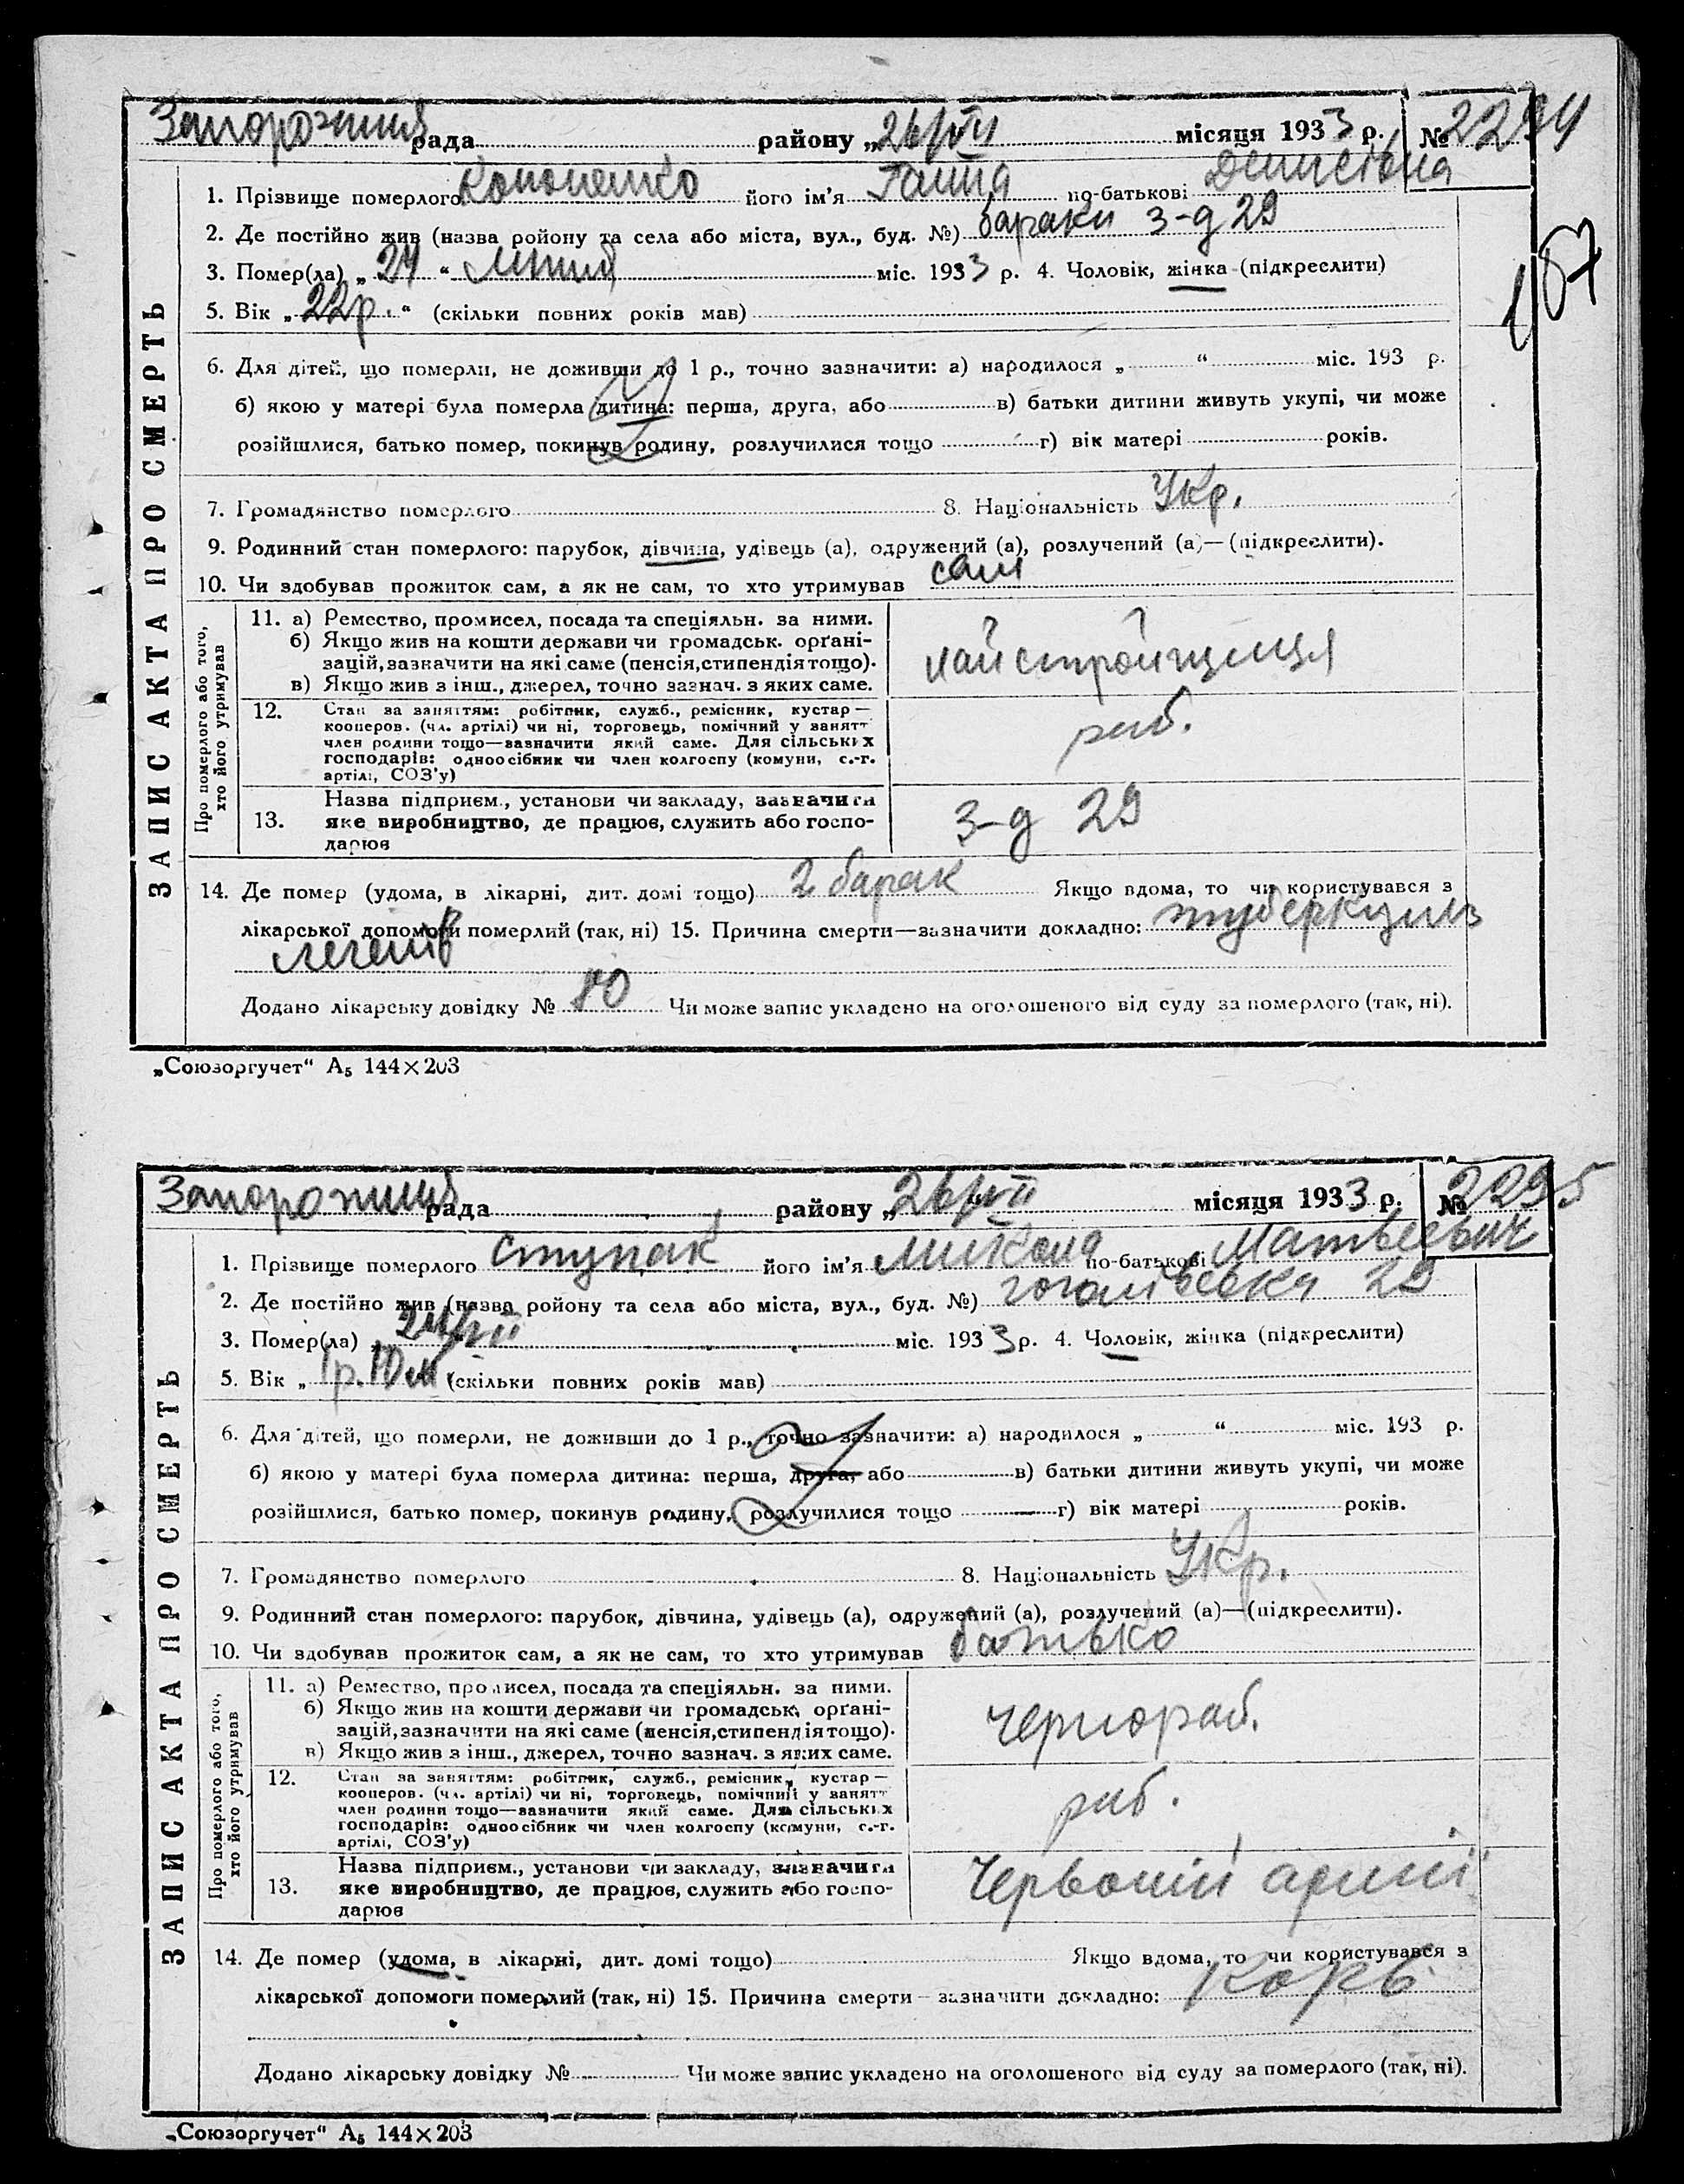 Запорожжий рада района „26/VII місяця 1933 р. № 2294
1. Прізвище померлого Кононенко його ім'я Ганна по-батькові Денисівна
2. Де постійно жив (назва ройону та села або міста, вул., буд. №) бараки 3-д 29
3. Помер(ла) „24“ липня міс. 1933 р. 4. Чоловік, жінка (підкреслити)
187
5. Вік „22р.“ (скільки повних років мав)
6. Для дітей, що померли, не доживши до 1 р., точно зазначити: а) народилося „ “ міс. 193 р.
б) якою у матері була померла дитина: перша, друга, або в) батьки дитини живуть укупі, чи може
розійшлися, батько помер, покинув родину, розлучилися тощо г) вік матері років.
7. Громадянство померлого 8. Національність Укр.
9. Родинний стан померлого: парубок, дівчина, удівець (а), одружений (а), розлучений (а)—(підкреслити).
10. Чи здобував прожиток сам, а як не сам, то хто утримував сам
ЗАПИС АКТА ПРО СМЕРТЬ
Про померлого або того, хто його утримував
11. а) Ремество, промисел, посада та спеціяльн. за ними.
б) Якщо жив на кошти держави чи громадськ. орґані-
зацій, зазначити на які саме (пенсія, стипендія тощо).
в) Якщо жив з інш., джерел, точно зазнач. з яких саме.
12. Стан за заняттям: робітник, служб., ремісник, кустар—
кооперов. (чл. артілі) чи ні, торговець, помічний у занятт
член родини тощо—зазначити який саме. Для сільських
господарів: одноосібник чи член колгоспу (комуни, с.-г.
артілі, СОЗ'у)
раб.
Назва підприєм., установи чи закладу, зазначити
13. яке виробництво, де працює, служить або госпо-
дарює
3-д 29
14. Де помер (удома, в лікарні, дит. домі тощо) 2 барак Якщо вдома, то чи користувався з
лікарської допомоги померлий (так, ні) 15. Причина смерти—зазначити докладно: туберкульз
легенів
Додано лікарську довідку № 80 Чи може запис укладено на оголошеного від суду за померлого (так, ні).
„Союзоргучет“ А₅ 144×203
рада району „26/VII місяця 1933 р. № 2295
1. Прізвище померлого Ступак його ім'я Микола по-батькові Матвеевич
2. Де постійно жив (назва ройону та села або міста, вул., буд. №) 29
3. Помер(ла) „24/VII міс. 1933 р. 4. Чоловік, жінка (підкреслити)
5. Вік „1р.10м (скільки повних років мав)
6. Для дітей, що померли, не доживши до 1 р., точно зазначити: а) народилося „ “ міс. 193 р.
б) якою у матері була померла дитина: перша, друга, або в) батьки дитини живуть укупі, чи може
розійшлися, батько помер, покинув родину, розлучилися тощо г) вік матері років.
7. Громадянство померлого 8. Національність Укр.
9. Родинний стан померлого: парубок, дівчина, удівець (а), одружений (а), розлучений (а)—(підкреслити).
10. Чи здобував прожиток сам, а як не сам, то хто утримував батько
ЗАПИС АКТА ПРО СМЕРТЬ
Про померлого або того, хто його утримував
11. а) Ремество, промисел, посада та спеціяльн. за ними.
б) Якщо жив на кошти держави чи громадськ. орґані-
зацій, зазначити на які саме (пенсія, стипендія тощо).
в) Якщо жив з інш., джерел, точно зазнач. з яких саме.
чернораб.
12. Стан за заняттям: робітник, служб., ремісник, кустар—
кооперов. (чл. артілі) чи ні, торговець, помічний у занятт
член родини тощо—зазначити який саме. Для сільських
господарів: одноосібник чи член колгоспу (комуни, с.-г.
артілі, СОЗ'у)
раб.
Назва підприєм., установи чи закладу, зазначити
13. яке виробництво, де працює, служить або госпо-
дарює
Червоній армії
14. Де помер (удома, в лікарні, дит. домі тощо) Якщо вдома, то чи користувався з
лікарської допомоги померлий (так, ні) 15. Причина смерти—зазначити докладно: корь
Додано лікарську довідку № Чи може запис укладено на оголошеного від суду за померлого (так, ні).
„Союзоргучет“ А₅ 144×203